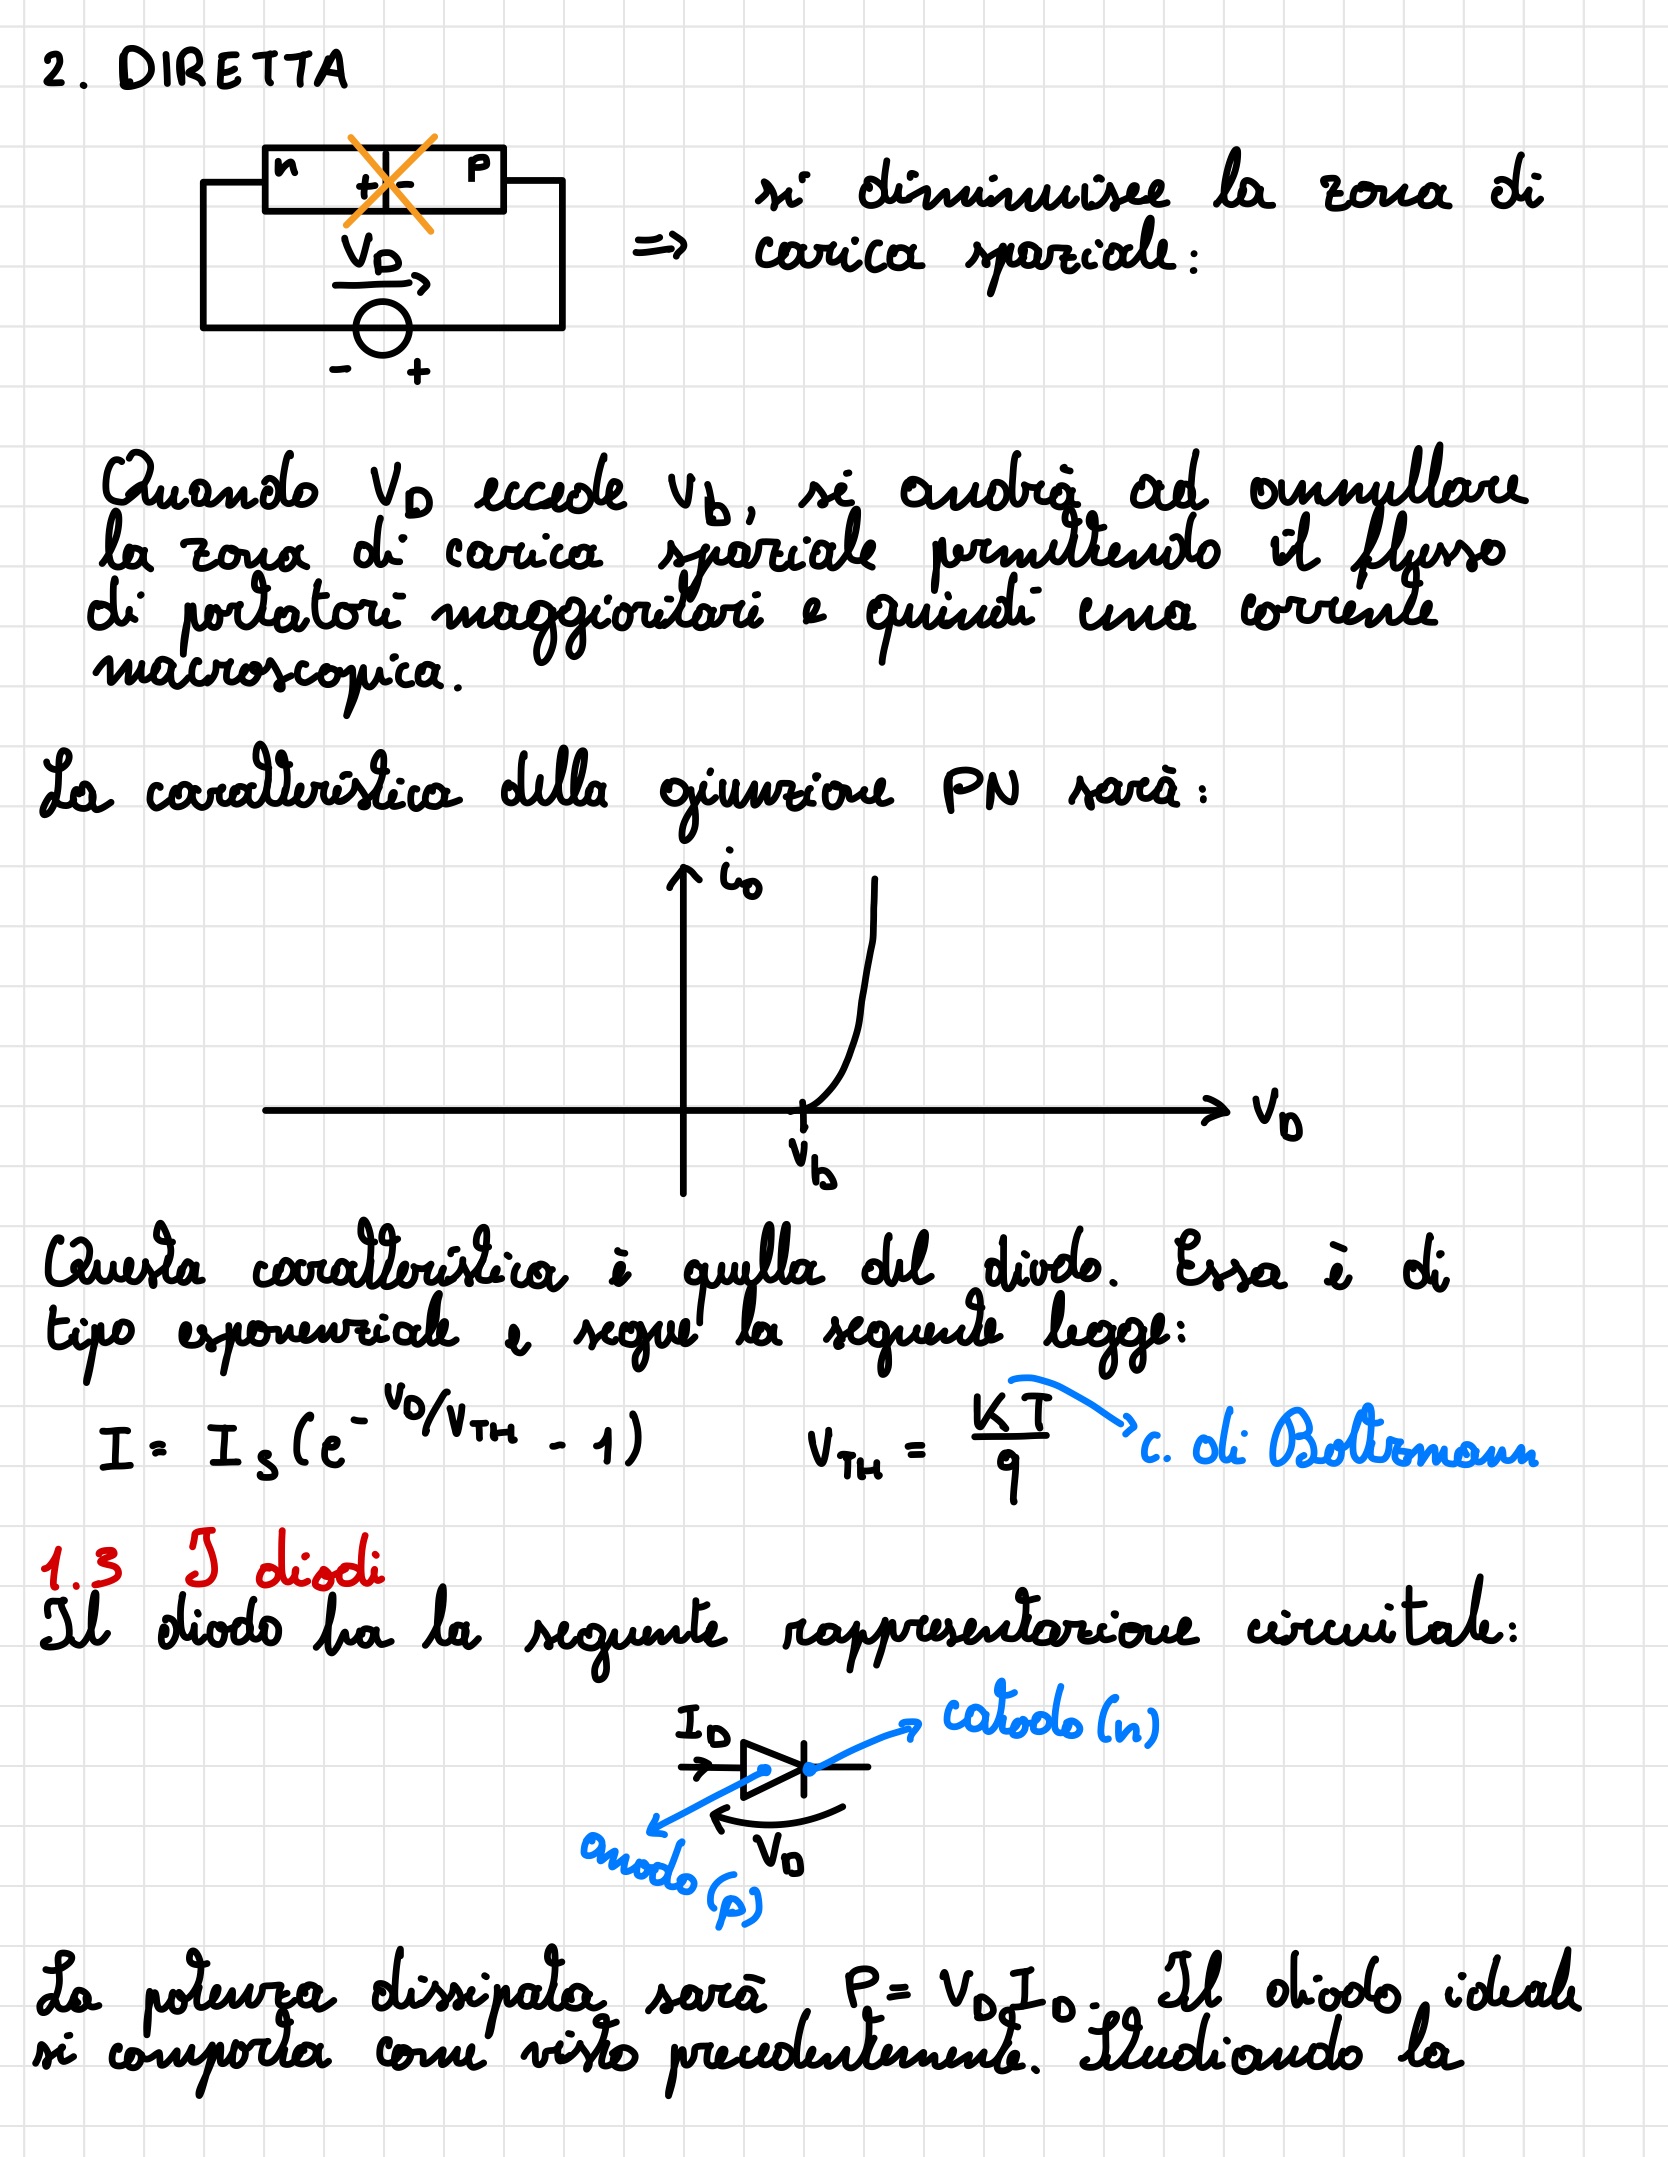 2. DIRETTA
n + - p
V_D
- +
⇒ si diminuisce la zona di
carica spaziale:
Quando V_D eccede V_b, si andrà ad annullare
la zona di carica spaziale permettendo il flusso
di portatori maggioritari e quindi una corrente
macroscopica.
La caratteristica della giunzione PN sarà:
i_D
V_D
V_b
Questa caratteristica è quella del diodo. Essa è di
tipo esponenziale e segue la seguente legge:
I = I_S (e^{-V_D/V_TH} - 1) V_TH = KT/q c. di Boltzmann
1.3 I diodi
Il diodo ha la seguente rappresentazione circuitale:
I_D
catodo (n)
V_D
anodo (p)
La potenza dissipata sarà P = V_D I_D. Il diodo ideale
si comporta come visto precedentemente. Studiando la